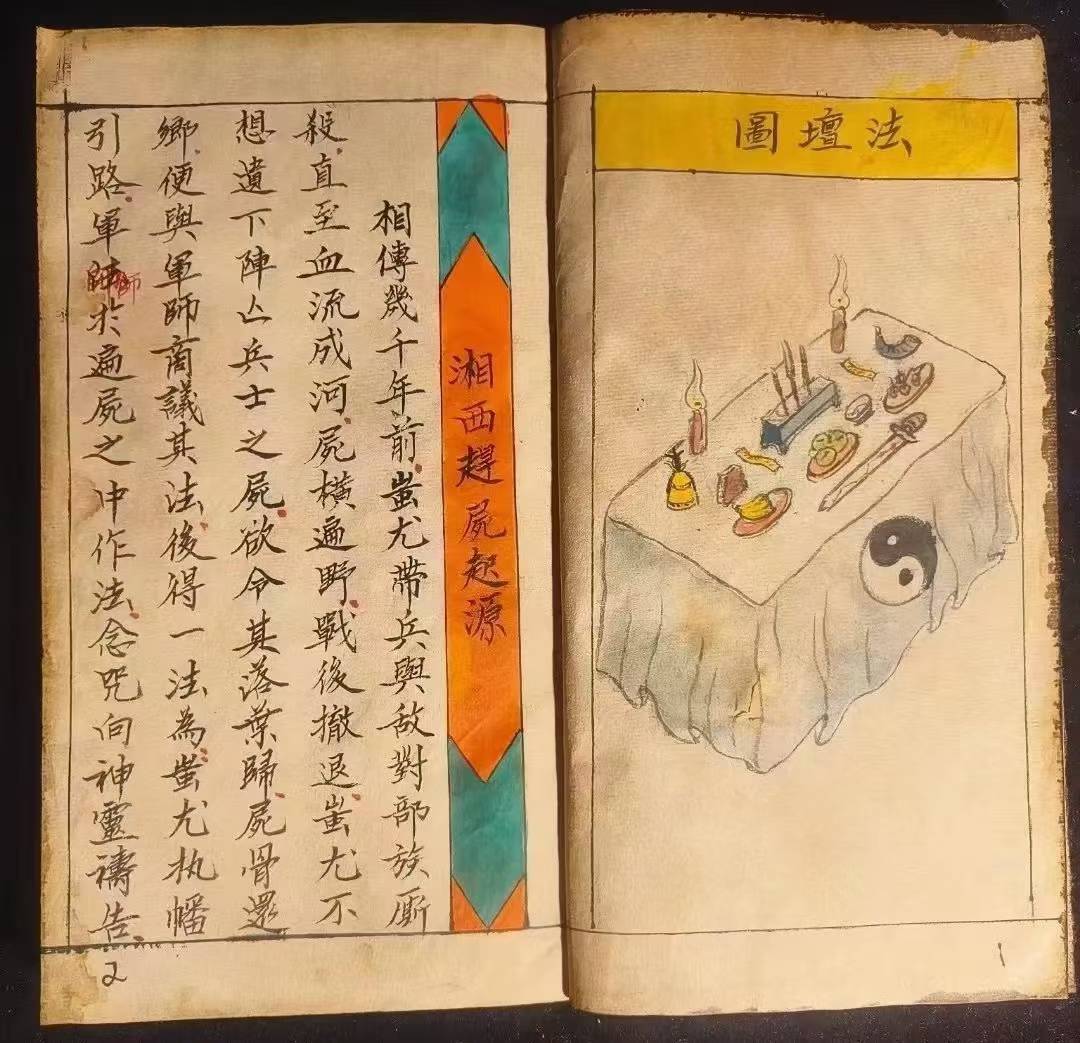 法壇圖
1
湘西趕屍起源
相傳幾千年前蚩尤帶兵與敵對部族厮
殺直至血流成河屍橫遍野戰後撤退蚩尤不
想遺下陣亡兵士之屍欲令其落葉歸屍骨還
鄉便與軍師商議其法後得一法為蚩尤执幡
引路軍師師於遍屍之中作法念咒向神靈禱告
2